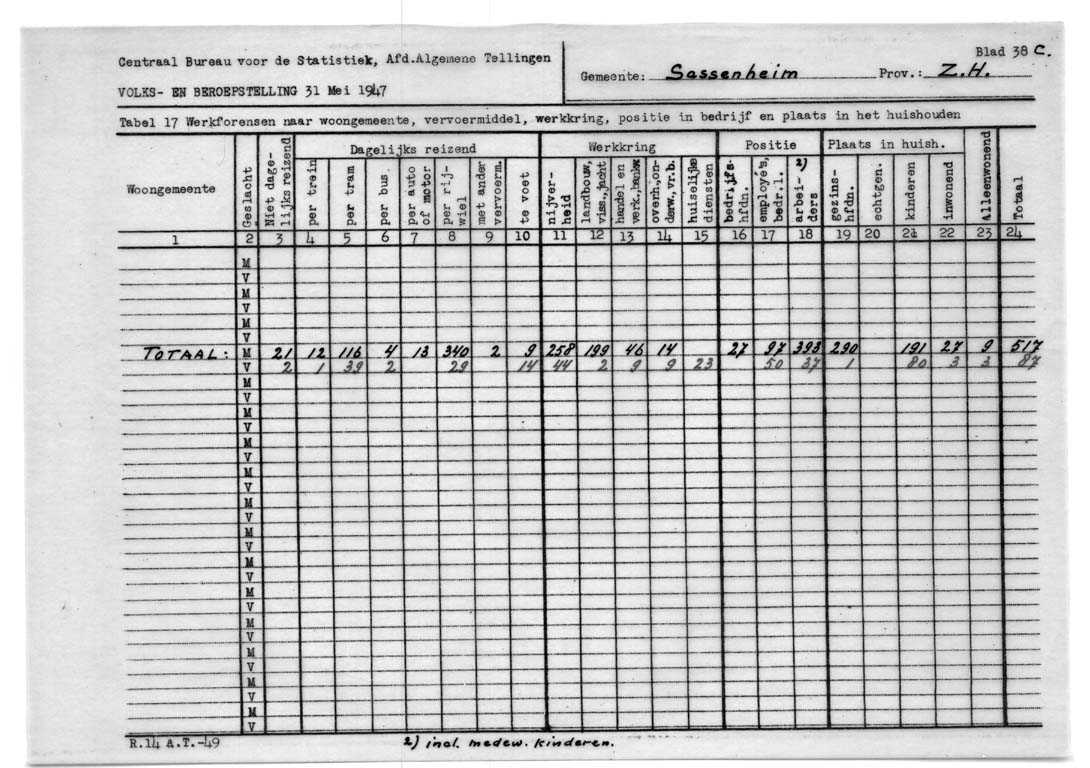 Blad 38 C.
Centraal Bureau voor de Statistiek, Afd.Algemene Tellingen
Gemeente: Sassenheim Prov.: Z.H.
VOLKS- EN BEROEPSTELLING 31 Mei 1947
Tabel 17 Werkforensen naar woongemeente, vervoermiddel, werkkring, positie in bedrijf en plaats in het huishouden
Woongemeente
Geslacht
Niet dage-
lijks reizend
Dagelijks reizend
per trein
per tram
per bus
per auto
of motor
per rij-
wiel
met ander
vervoerm.
te voet
Werkkring
nijver-
heid
landbouw,
viss.,jacht
handel en
verk.,bankw
overh.,on-
derw.,vr.b.
huiselijke
diensten
Positie
bedrijfs-
hfdn.
employé's,
bedr.l.
arbei- 2)
ders
Plaats in huish.
gezins-
hfdn.
echtgen.
kinderen
inwonend
alleenwonend
Totaal
1 2 3 4 5 6 7 8 9 10 11 12 13 14 15 16 17 18 19 20 21 22 23 24
M
V
M
V
M
V
TOTAAL: M 21 12 116 4 13 340 2 9 258 199 46 14 27 97 393 290 191 27 9 517
V 2 1 39 2 29 14 44 2 9 9 23 50 37 1 80 3 3 87
M
V
M
V
M
V
M
V
M
V
M
V
M
V
M
V
M
V
M
V
M
V
M
V
R.14 A.T.-49
2) incl. medew. kinderen.